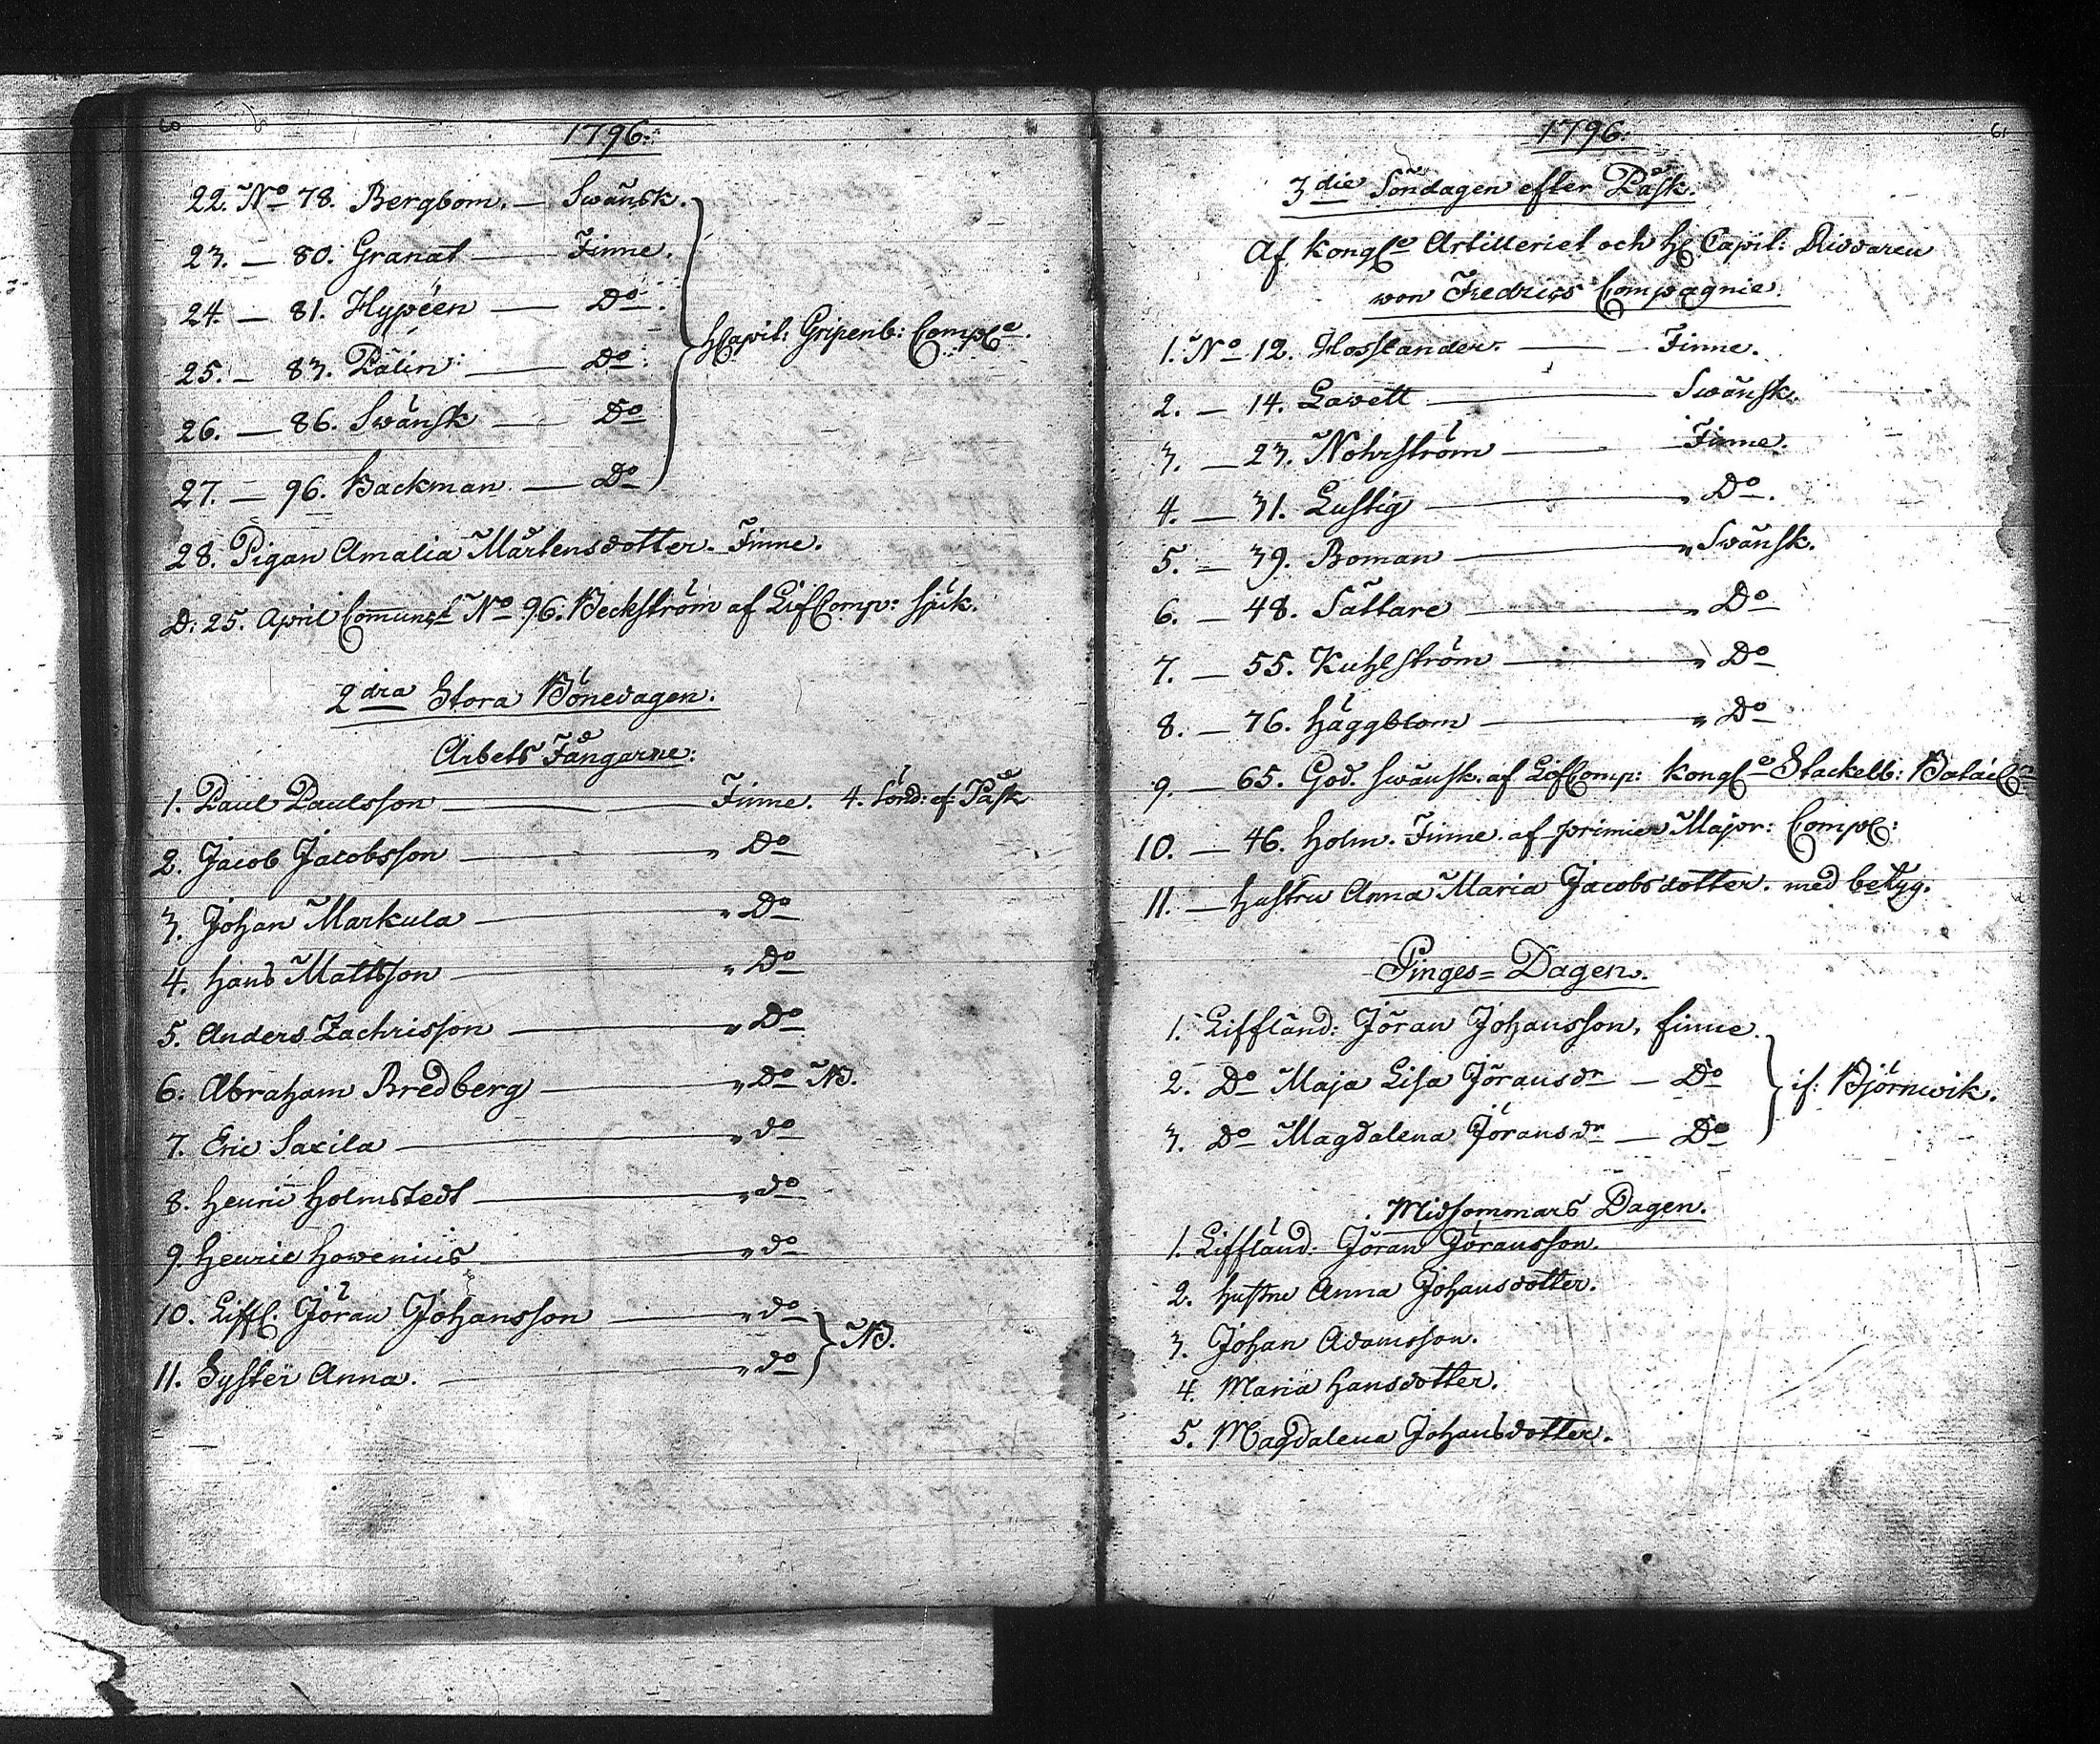 60
1796.
22. No 78. Bergbom. — Swänsk.
23. — 80. Granat — Finne.
24. — 81. Hypéen — Do.
25. — 83. Palin — Do.
26. — 86. Swänsk — Do
27. — 96. Backman — Do
HCapit: Gripenb: Comp:e
28. Pigan Amalia Mårtensdotter. Finne.
D: 25. April Communic: No 96. Beckström af LifComp: sjuk.
2dra Stora Bönedagen.
Arbets Fångarne:
1. Paul Paulsson — Finne. 4. Sönd: ef: Påsk
2. Jacob Jacobsson — Do
3. Johan Markula — Do
4. Hans Mattsson — Do
5. Anders Zachrisson — Do
6. Abraham Bredberg — Do NB.
7. Eric Saxila — do
8. Henric Holmstedt — do
9. Henric Howenius — do
10. Liffl. Jöran Johansson — do
11. Syster Anna. — do
NB.
61
1796.
3die Söndagen efter Påsk.
Af Kongl:e Artilleriet och H: Capit: Riddaren
von Fredrics Compagnie.
1. No 12. Hosslander. — Finne.
2. — 14. Lavett — Swänsk.
3. — 23. Nohrström — Finne.
4. — 31. Lustig — Do.
5. — 39. Boman — Swänsk.
6. — 48. Sättare — Do
7. — 55. Kuhlström — Do
8. — 76. Häggblom — Do
9. — 65. God. Swänsk. af LifComp: Kongl:e Stackelb:
10. — 46. Holm. Finne. af primier Major: Comp:
11. — Hustru Anna Maria Jacobsdotter. med betyg.
Pinges=Dagen.
1. Liffländ: Jöran Johansson, finne.
2. Do Maja Lisa Jöransdr — Do
3. Do Magdalena Jöransdr — Do
if: Björnwik.
Midsommars Dagen.
1. Liffländ: Jöran Jöransson.
2. Hustru Anna Johansdotter.
3. Johan Adamsson.
4. Maria Hansdotter.
5. Magdalena Johansdotter.